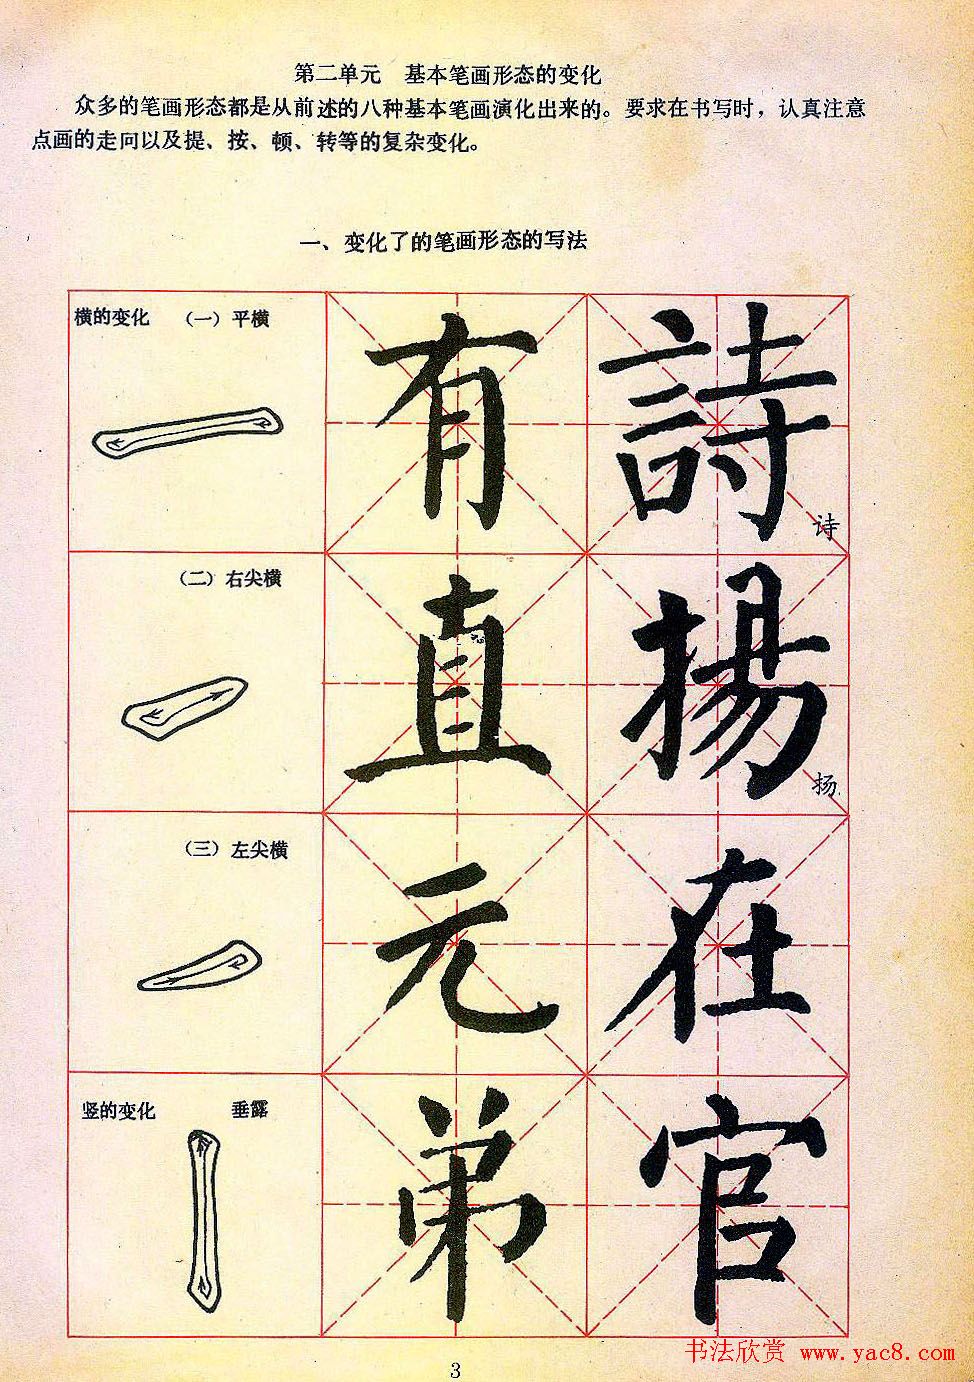 第二单元 基本笔画形态的变化
众多的笔画形态都是从前述的八种基本笔画演化出来的。要求在书写时，认真注意
点画的走向以及提、按、顿、转等的复杂变化。
一、变化了的笔画形态的写法
横的变化 （一）平横
有 詩
诗
（二）右尖横
直 揚
扬
（三）左尖横
元 在
竖的变化 垂露
弟 官
3
书法欣赏 www.yac8.com